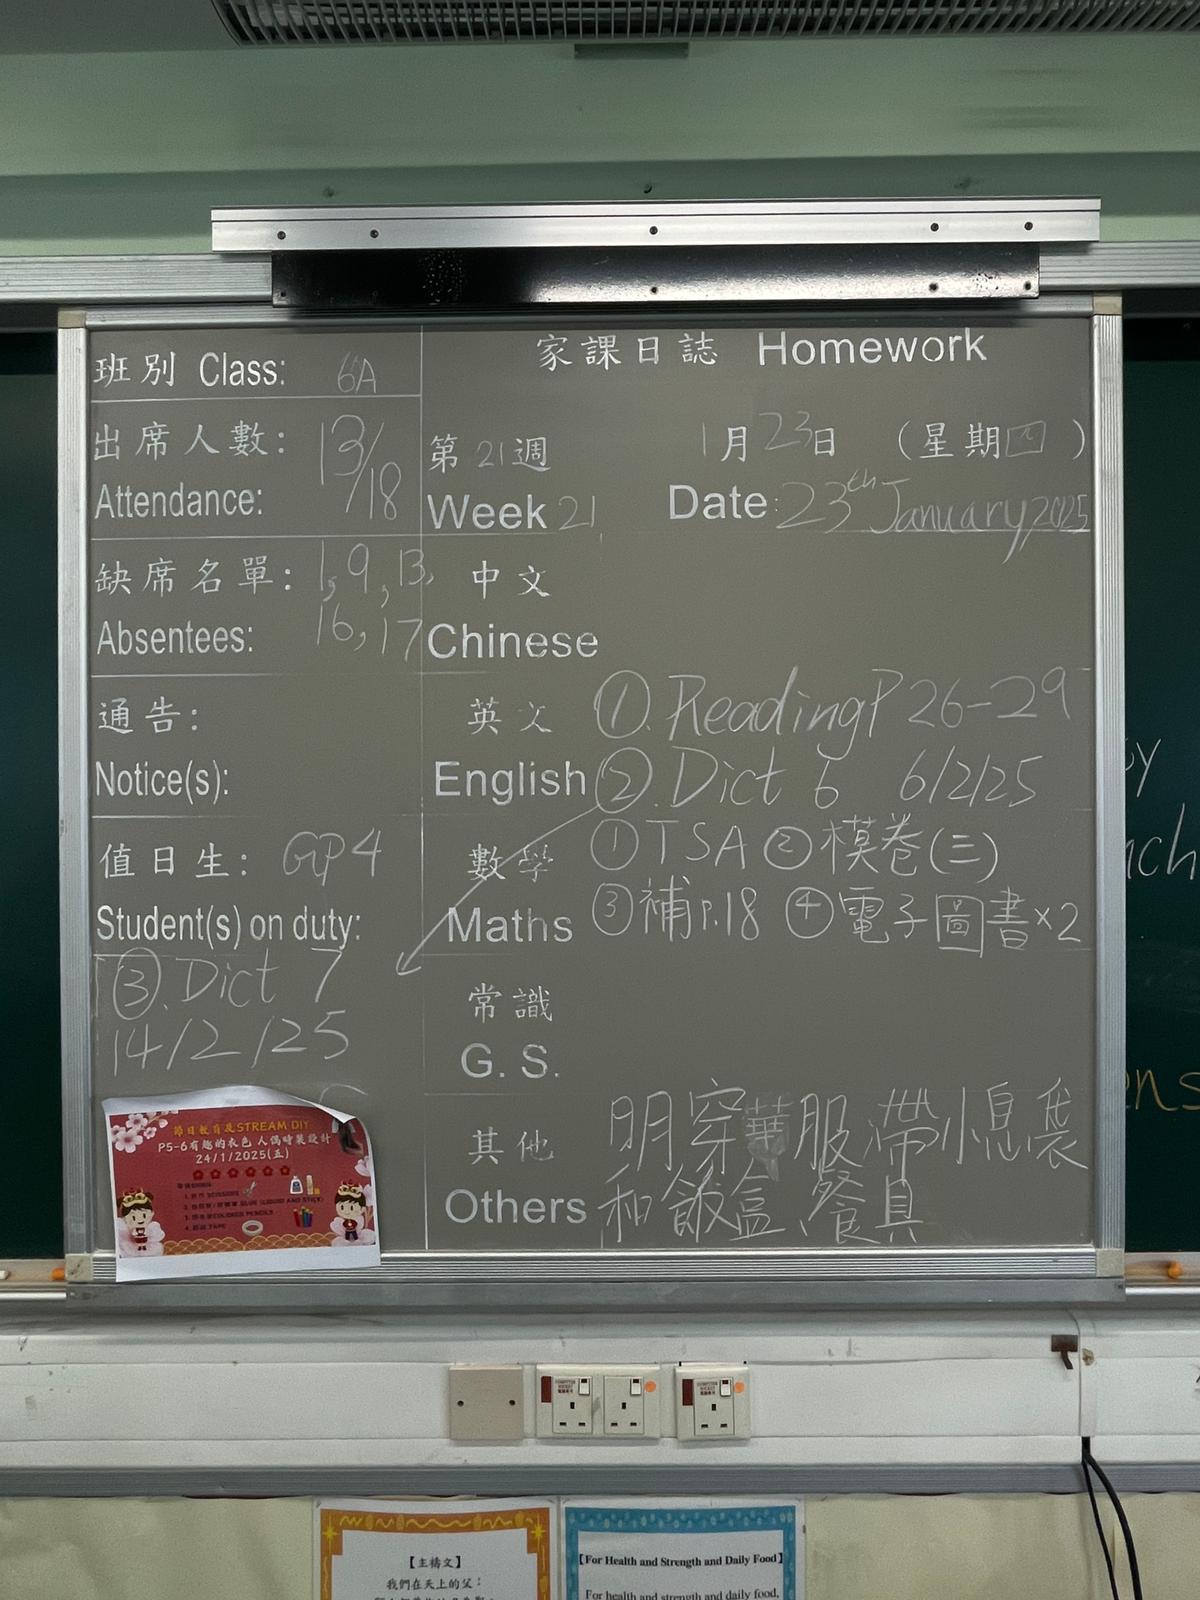 班別 Class: 6A
出席人數: 13/18
Attendance:
缺席名單: 1, 9, 13,
Absentees: 16, 17
通告:
Notice(s):
值日生: GP4
Student(s) on duty:
③. Dict 7
14/2/25
家課日誌 Homework
第21週 1月23日 (星期四)
Week 21 Date: 23th January 2025
中文
Chinese
英文 ①. Reading P 26-29
English ②. Dict 6 6/2/25
數學 ① TSA ② 模卷(三)
Maths ③ 補p.18 ④ 電子圖書×2
常識
G. S.
其他 明穿華服 帶小息袋
Others 和飯盒、餐具
節日教育及STREAM DIY
P5-6有趣的衣色 人偶時裝設計
24/1/2025(五)
SCISSORS
GLUE (LIQUID AND STICK)
COLORED PENCILS
TAPE
【主禱文】
我們在天上的父:
【For Health and Strength and Daily Food】
For health and strength and daily food,